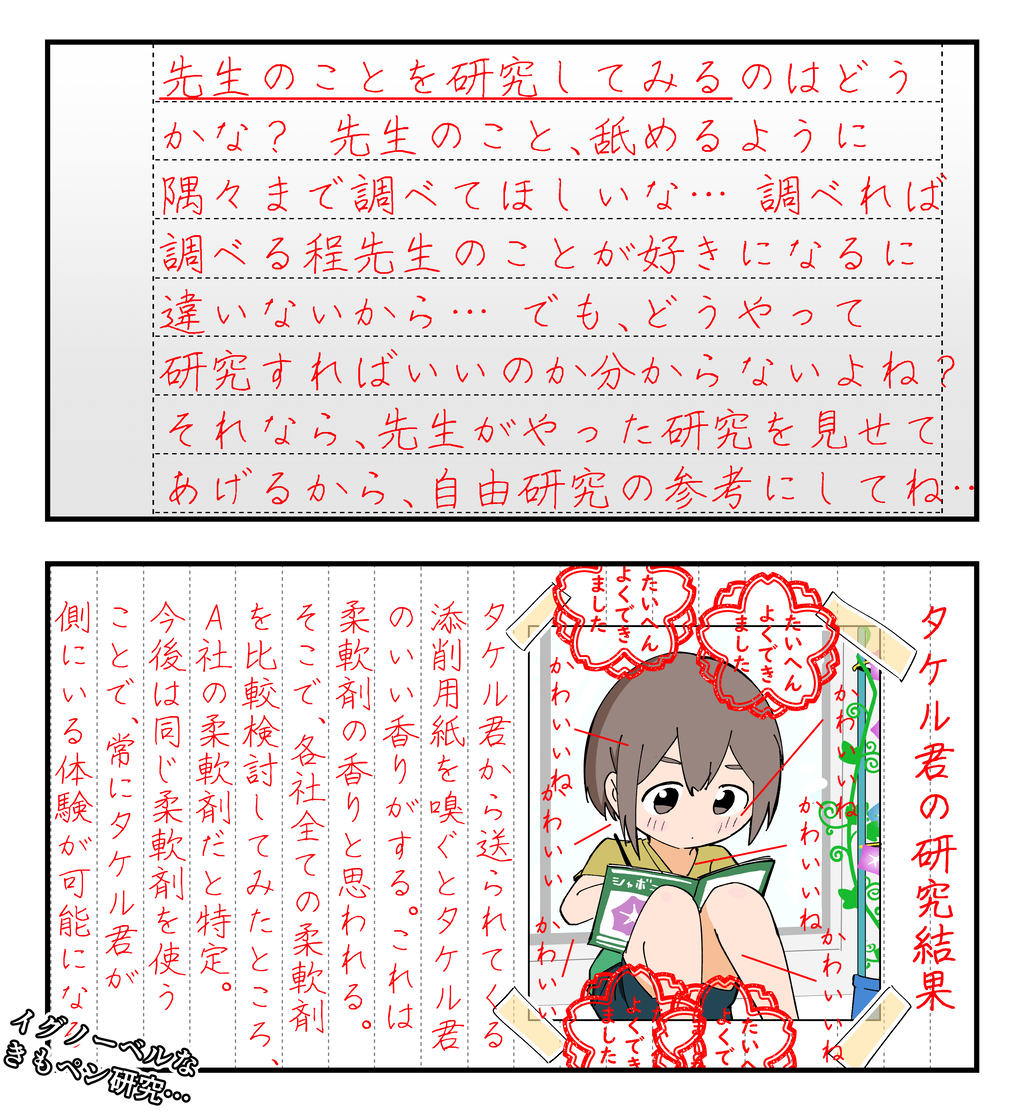 先生のことを研究してみるのはどう
かな？　先生のこと、舐めるように
隅々まで調べてほしいな… 調べれば
調べる程先生のことが好きになるに
違いないから… でも、どうやって
研究すればいいのか分からないよね？
それなら、先生がやった研究を見せて
あげるから、自由研究の参考にしてね…
タケル君の研究結果
たいへん
よくでき
ました
たいへん
よくでき
ました
かわいいね
かわいいね
かわいいね
かわいい
かわいい
かわいいね
シャボニ
よくでき
ました
たいへん
よくで
タケル君から送られてくる
添削用紙を嗅ぐとタケル君
のいい香りがする。これは
柔軟剤の香りと思われる。
そこで、各社全ての柔軟剤
を比較検討してみたところ、
A社の柔軟剤だと特定。
今後は同じ柔軟剤を使う
ことで、常にタケル君が
側にいる体験が可能にな
イグノーベルな
きもペン研究…